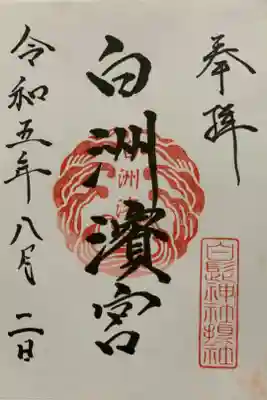 奉拝
白洲濱宮
令和五年八月二日
白髭神社摂社